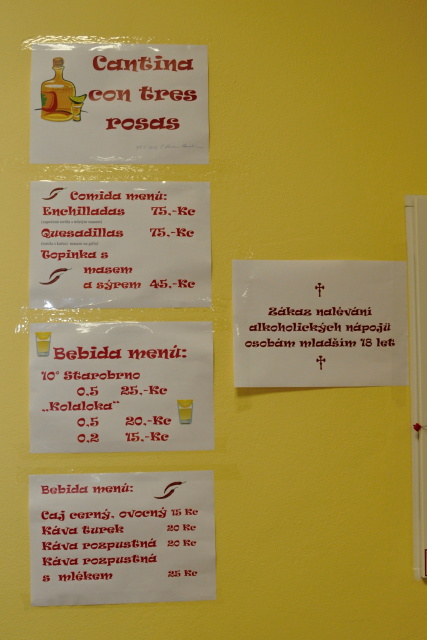 Cantina
con tres
rosas
Comida menú:
Enchilladas 75,-Kc
Quesadillas 75,-Kc
Topinka s
masem
a sýrem 45,-Kc
Bebida menú:
10° Starobrno
0,5 25,-Kc
„Kolaloka“
0,5 20,-Kc
0,2 15,-Kc
Bebida menú:
Caj cerný, ovocný 15 Kc
Káva turek 20 Kc
Káva rozpustná 20 Kc
Káva rozpustná
s mlékem 25 Kc
Zákaz nalévání
alkoholických nápojů
osobám mladším 18 let